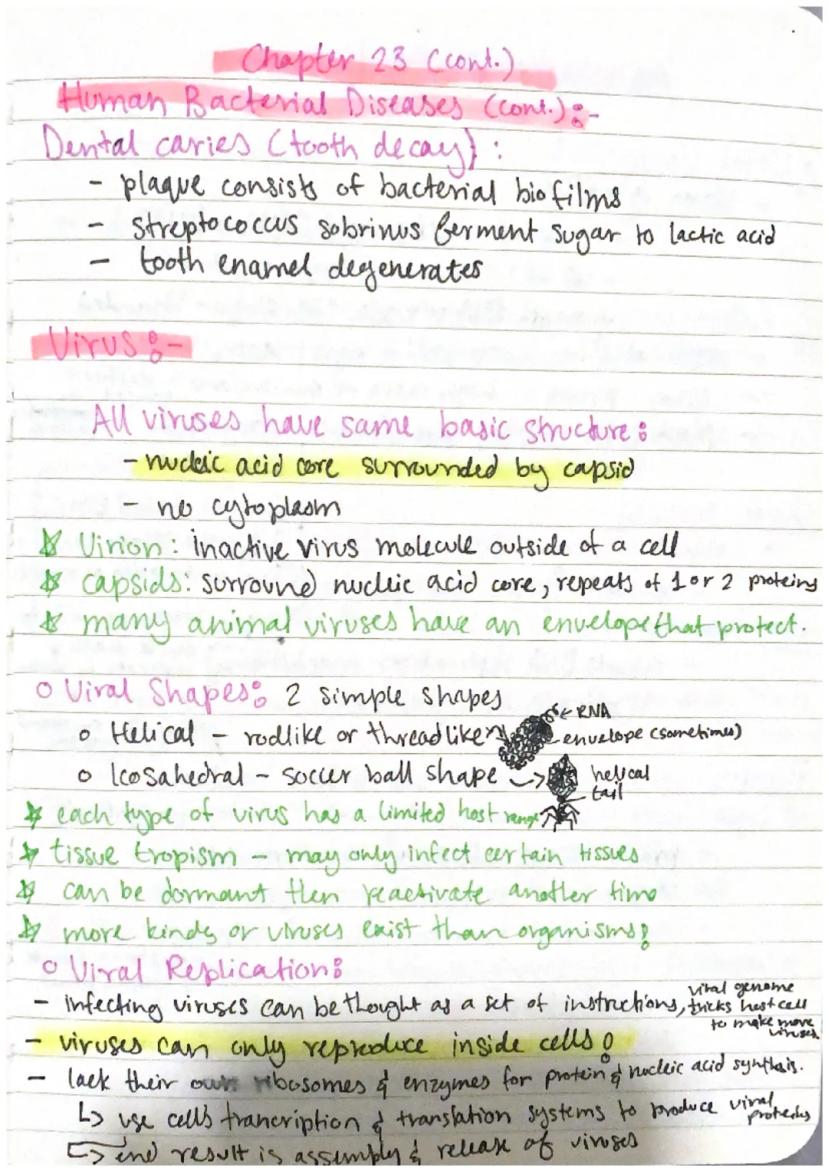 Chapter 23 (cont.)
Human Bacterial Diseases (cont.):-
Dental caries (tooth decay):
- plaque consists of bacterial biofilms
- streptococcus sobrinus ferment sugar to lactic acid
- tooth enamel degenerates
Virus:-
All viruses have same basic structure:
- nucleic acid core surrounded by capsid
- no cytoplasm
☆ Virion: inactive virus molecule outside of a cell
☆ capsids: surround nucleic acid core, repeats of 1 or 2 proteins
☆ many animal viruses have an envelope that protect.
o Viral Shapes: 2 simple shapes
← RNA
o Helical - rodlike or threadlike
envelope (sometimes)
o Icosahedral - soccer ball shape →
helical
tail
☆ each type of virus has a limited host range
☆ tissue tropism - may only infect certain tissues
☆ can be dormant then reactivate another time
☆ more kinds or viruses exist than organisms!
o Viral Replication:
- infecting viruses can be thought as a set of instructions, viral genome
tricks host cell
to make more
viruses
- viruses can only reproduce inside cells!
- lack their own ribosomes & enzymes for protein & nucleic acid synthsis.
↳ use cells trancription & translation systems to produce viral
proteins
↳ end result is assembly & release of viruses